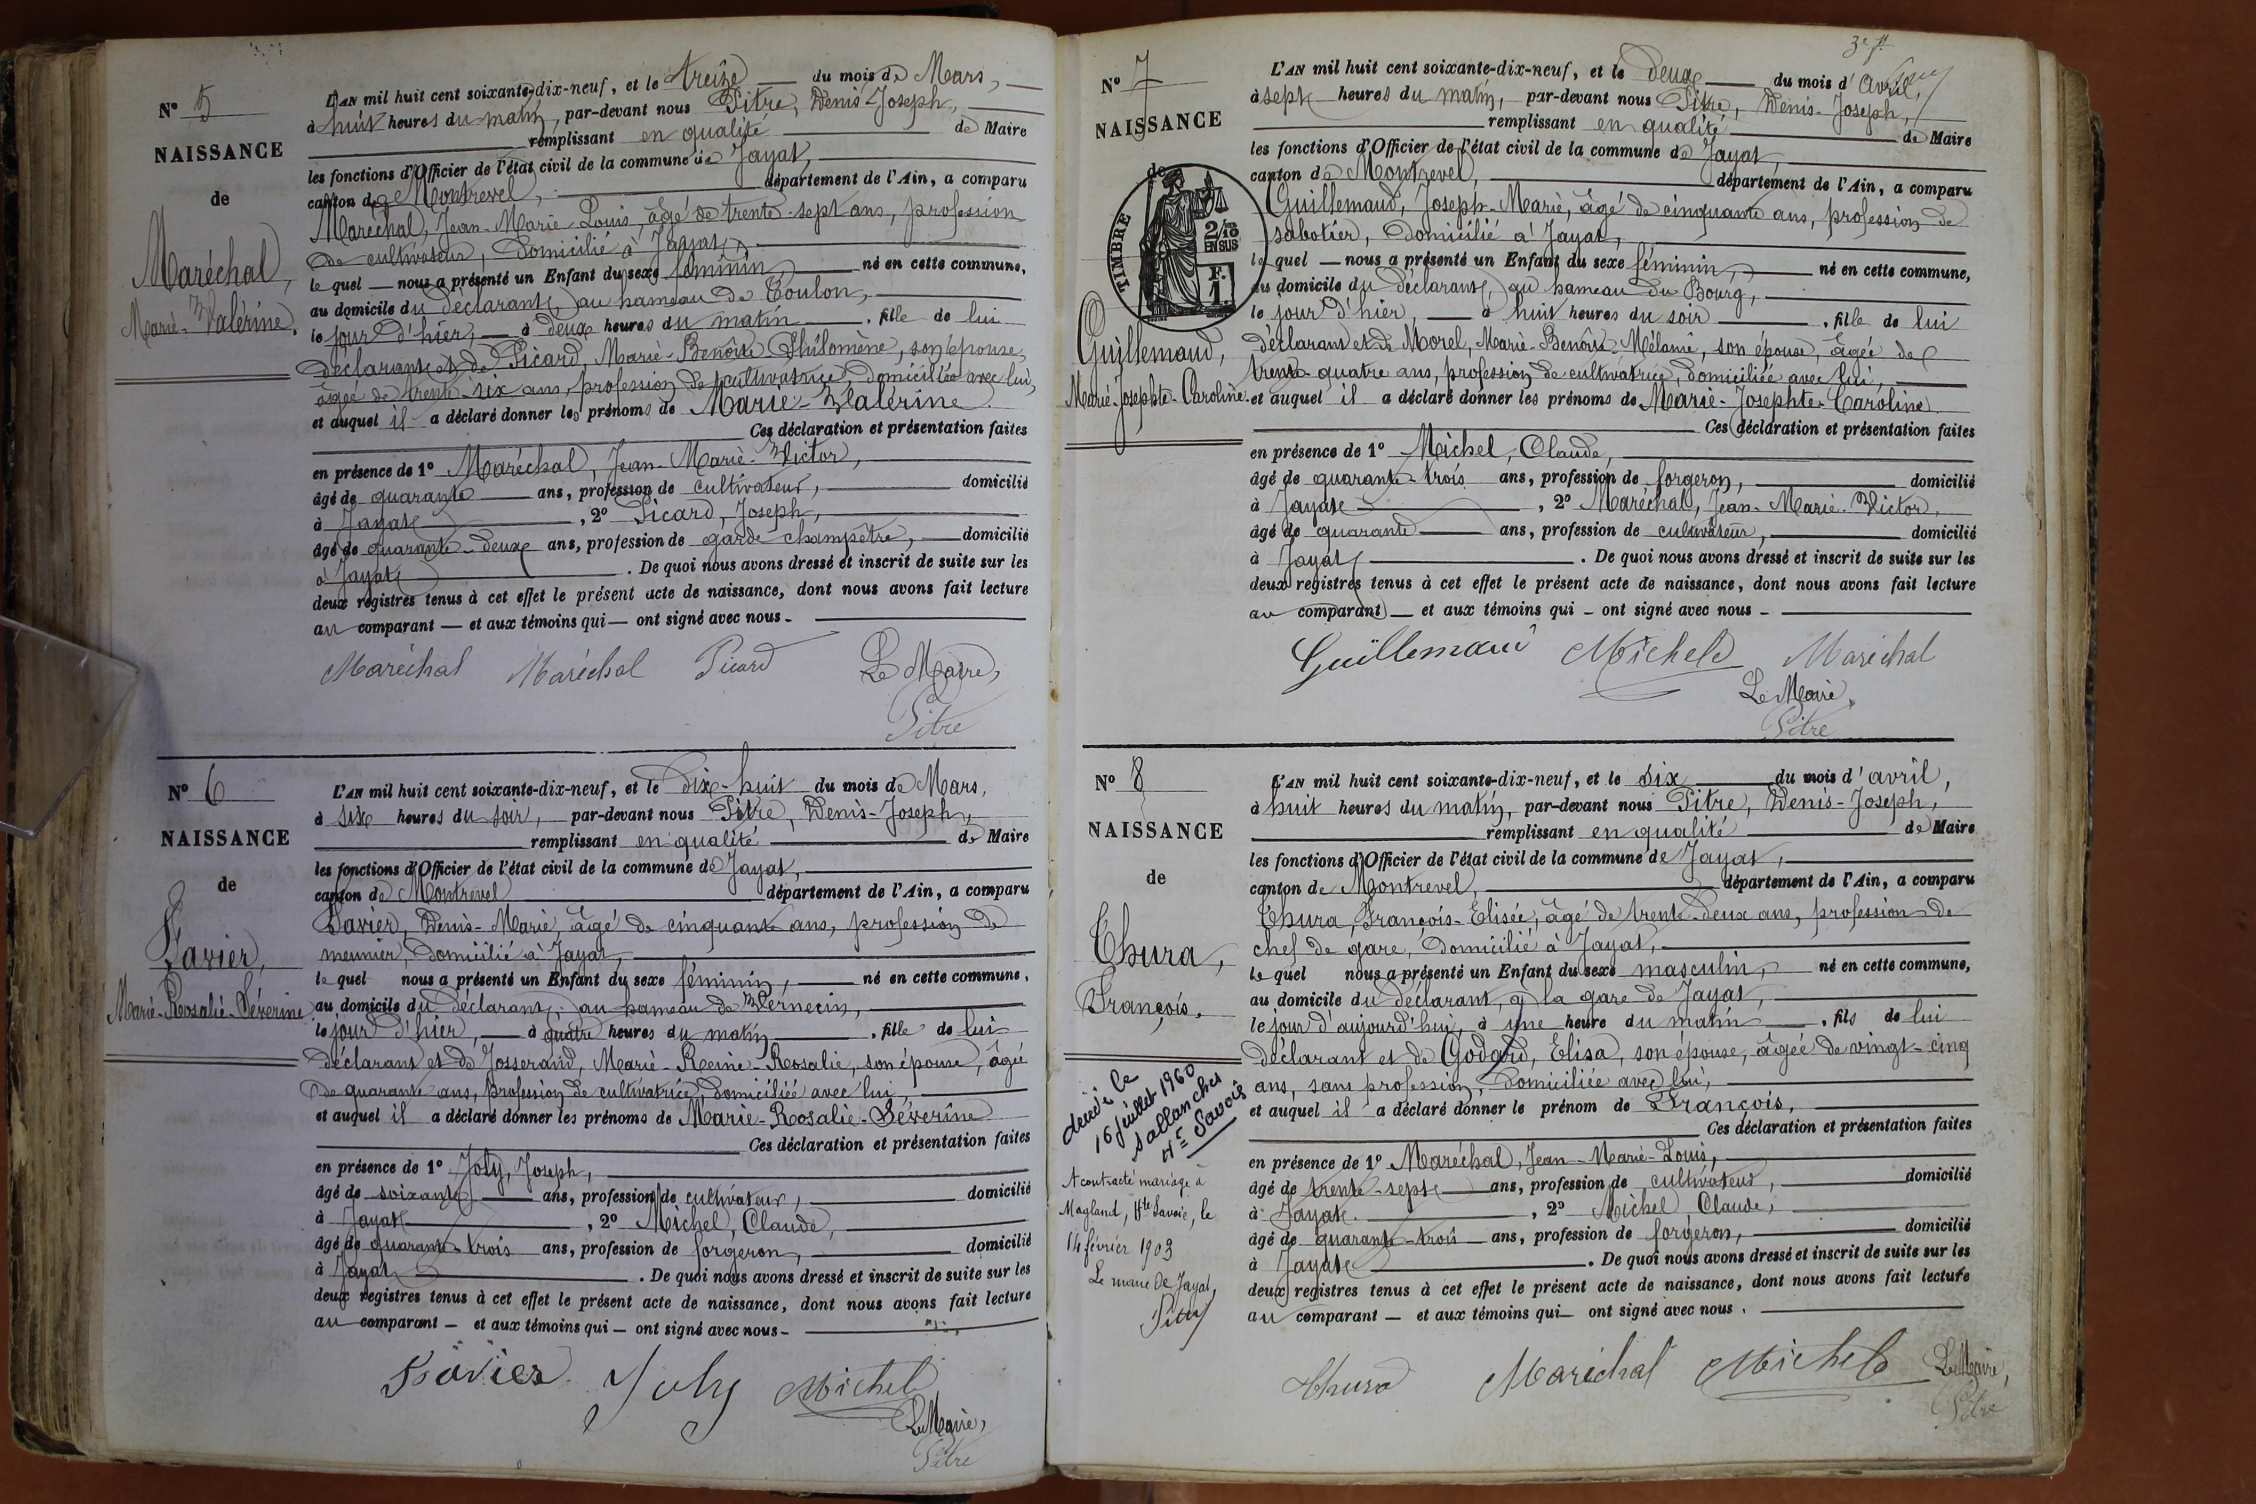 N° 5
NAISSANCE
de
Maréchal,
Marie-Valérine.
L'AN mil huit cent soixante-dix-neuf, et le treize du mois de Mars,
à huit heures du matin, par-devant nous Pitre, Denis-Joseph,
remplissant en qualité de Maire
les fonctions d'Officier de l'état civil de la commune de Jayat,
canton de Montrevel, département de l'Ain, a comparu
Maréchal, Jean-Marie-Louis, âgé de trente-sept ans, profession
de cultivateur, domicilié à Jayat,
le quel nous a présenté un Enfant du sexe féminin, né en cette commune,
au domicile du déclarant, au hameau de Toulon,
le jour d'hier, à deux heures du matin, fille de lui
déclarant et de Picard, Marie-Benoîte Philomène, son épouse,
âgée de trente-six ans, profession de cultivatrice, domiciliée avec lui,
et auquel il a déclaré donner les prénoms de Marie-Valérine.
Ces déclaration et présentation faites
en présence de 1° Maréchal, Jean-Marie-Victor,
âgé de quarante ans, profession de cultivateur, domicilié
à Jayat, 2° Picard, Joseph,
âgé de quarante-deux ans, profession de garde champêtre, domicilié
à Jayat. De quoi nous avons dressé et inscrit de suite sur les
deux registres tenus à cet effet le présent acte de naissance, dont nous avons fait lecture
au comparant et aux témoins qui ont signé avec nous.
Maréchal Maréchal Picard Le Maire,
Pitre
N° 6
NAISSANCE
de
Favier,
Marie-Rosalie-Séverine
L'AN mil huit cent soixante-dix-neuf, et le dix-huit du mois de Mars,
à six heures du soir, par-devant nous Pitre, Denis-Joseph,
remplissant en qualité de Maire
les fonctions d'Officier de l'état civil de la commune de Jayat,
canton de Montrevel département de l'Ain, a comparu
Favier, Denis-Marie, âgé de cinquante ans, profession de
meunier, domicilié à Jayat,
le quel nous a présenté un Enfant du sexe féminin, né en cette commune,
au domicile du déclarant, au hameau de Vernecin,
le jour d'hier, à quatre heures du matin, fille de lui
déclarant et de Josserand, Marie-Reine-Rosalie, son épouse, âgée
de quarante ans, profession de cultivatrice, domiciliée avec lui,
et auquel il a déclaré donner les prénoms de Marie-Rosalie-Séverine
Ces déclaration et présentation faites
en présence de 1° Joly, Joseph,
âgé de soixante ans, profession de cultivateur, domicilié
à Jayat, 2° Michel, Claude,
âgé de quarante-trois ans, profession de forgeron, domicilié
à Jayat. De quoi nous avons dressé et inscrit de suite sur les
deux registres tenus à cet effet le présent acte de naissance, dont nous avons fait lecture
au comparant et aux témoins qui ont signé avec nous
Favier Joly Michel
Le Maire,
Pitre
3e f.
N° 7
NAISSANCE
de
TIMBRE
2/10 EN SUS
F. 1
Guillemaud,
Marie-Josephte-Caroline.
L'AN mil huit cent soixante-dix-neuf, et le deux du mois d'avril,
à sept heures du matin, par-devant nous Pitre, Denis-Joseph,
remplissant en qualité de Maire
les fonctions d'Officier de l'état civil de la commune de Jayat,
canton de Montrevel, département de l'Ain, a comparu
Guillemaud, Joseph-Marie, âgé de cinquante ans, profession de
sabotier, domicilié à Jayat,
le quel nous a présenté un Enfant du sexe féminin, né en cette commune,
au domicile du déclarant, au hameau du Bourg,
le jour d'hier, à huit heures du soir, fille de lui
déclarant et de Morel, Marie-Benoîte-Mélanie, son épouse, âgée de
trente-quatre ans, profession de cultivatrice, domiciliée avec lui,
et auquel il a déclaré donner les prénoms de Marie-Josephte-Caroline.
Ces déclaration et présentation faites
en présence de 1° Michel, Claude,
âgé de quarante-trois ans, profession de forgeron, domicilié
à Jayat, 2° Maréchal, Jean-Marie-Victor,
âgé de quarante ans, profession de cultivateur, domicilié
à Jayat. De quoi nous avons dressé et inscrit de suite sur les
deux registres tenus à cet effet le présent acte de naissance, dont nous avons fait lecture
au comparant et aux témoins qui ont signé avec nous
Guillemaud Michel Maréchal
Le Maire,
Pitre
N° 8
NAISSANCE
de
Thura,
François.
décédé le
16 juillet 1960
Sallanches
Hte Savoie
A contracté mariage à
Magland, Hte Savoie, le
14 février 1903
Le maire de Jayat,
L'AN mil huit cent soixante-dix-neuf, et le six du mois d'avril,
à huit heures du matin, par-devant nous Pitre, Denis-Joseph,
remplissant en qualité de Maire
les fonctions d'Officier de l'état civil de la commune de Jayat,
canton de Montrevel, département de l'Ain, a comparu
Thura, François-Elisée, âgé de trente-deux ans, profession de
chef de gare, domicilié à Jayat,
le quel nous a présenté un Enfant du sexe masculin, né en cette commune,
au domicile du déclarant, à la gare de Jayat,
le jour d'aujourd'hui, à une heure du matin, fils de lui
déclarant et de Godard, Elisa, son épouse, âgée de vingt-cinq
ans, sans profession, domiciliée avec lui,
et auquel il a déclaré donner le prénom de François,
Ces déclaration et présentation faites
en présence de 1° Maréchal, Jean-Marie-Louis,
âgé de trente-sept ans, profession de cultivateur, domicilié
à Jayat, 2° Michel, Claude,
âgé de quarante-trois ans, profession de forgeron, domicilié
à Jayat. De quoi nous avons dressé et inscrit de suite sur les
deux registres tenus à cet effet le présent acte de naissance, dont nous avons fait lecture
au comparant et aux témoins qui ont signé avec nous.
Thura Maréchal Michel Le Maire,
Pitre